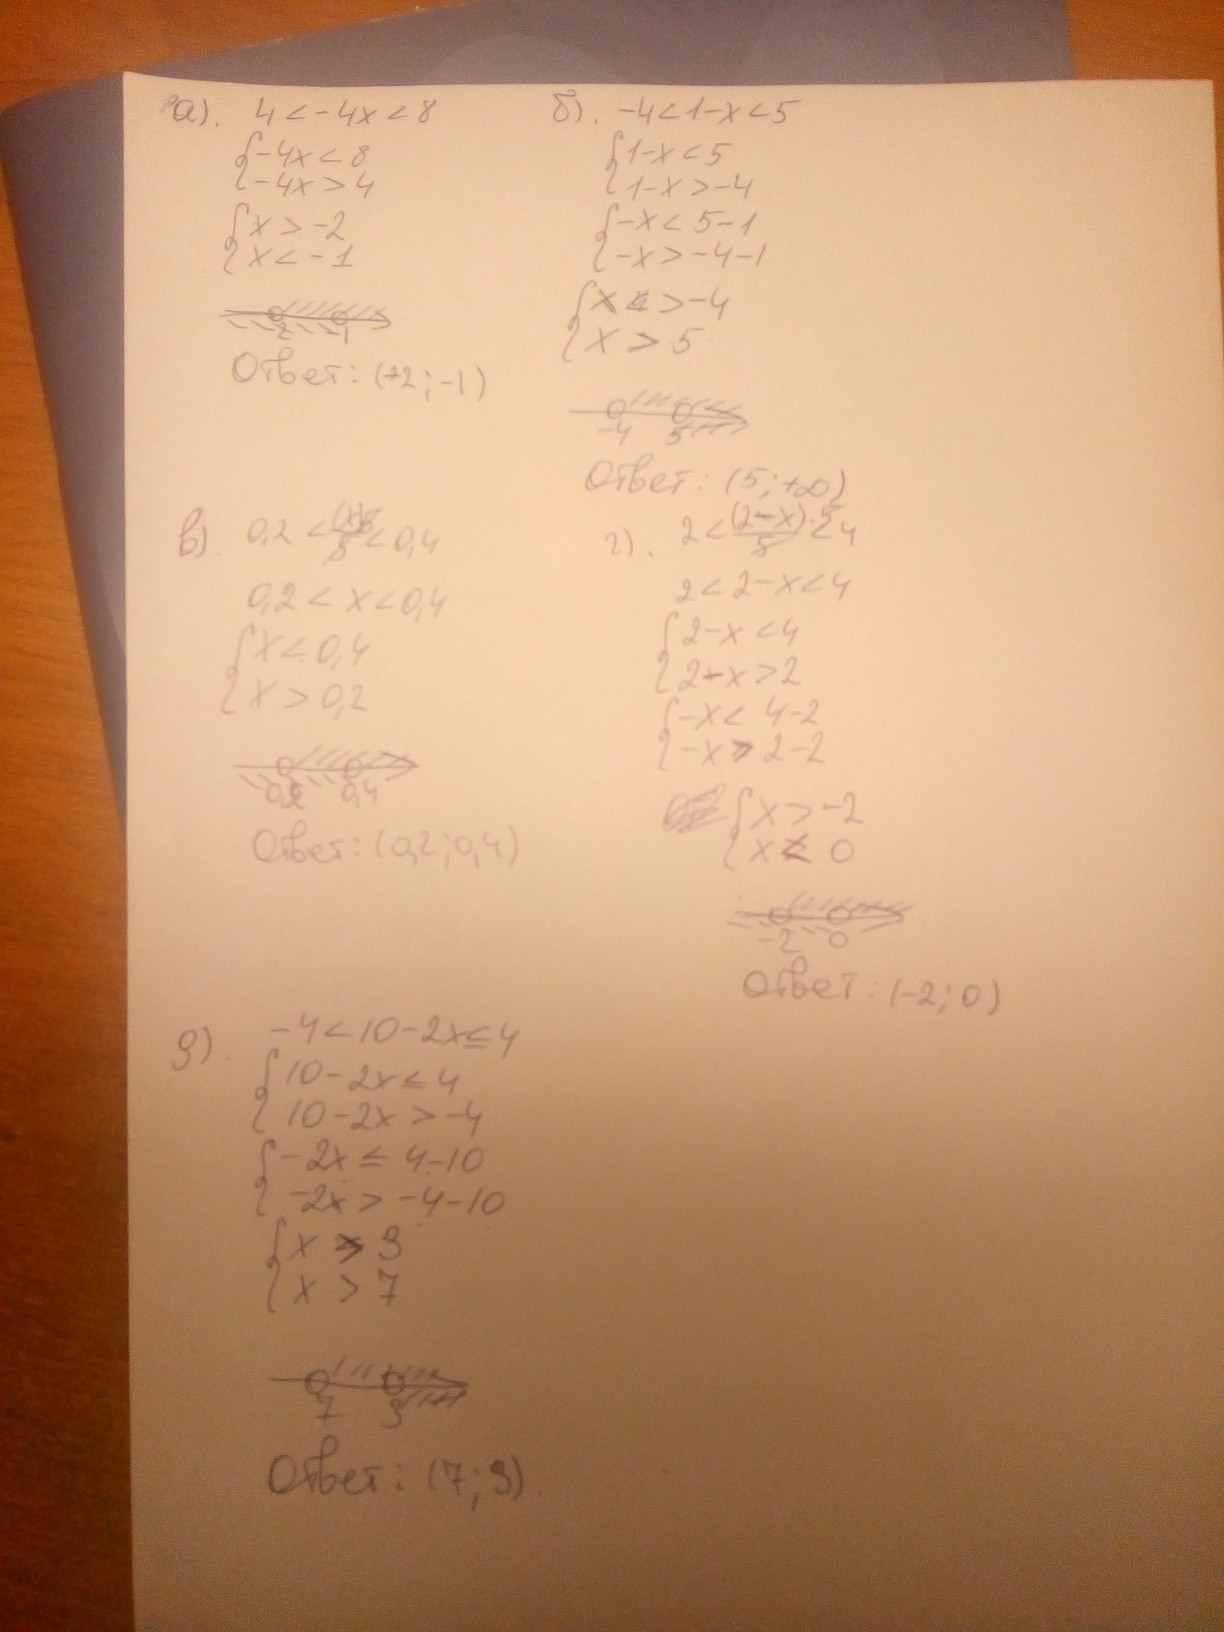 а). 4 < -4x < 8
{-4x < 8
{-4x > 4
{x > -2
{x < -1
-2 -1
Ответ: (-2; -1)
б). -4 < 1-x < 5
{1-x < 5
{1-x > -4
{-x < 5-1
{-x > -4-1
{x > -4
{x > 5
-4 5
Ответ: (5; +∞)
в). 0,2 < (x)·5/5 < 0,4
0,2 < x < 0,4
{x < 0,4
{x > 0,2
0,2 0,4
Ответ: (0,2; 0,4)
г). 2 < (2-x)·5/5 < 4
2 < 2-x < 4
{2-x < 4
{2-x > 2
{-x < 4-2
{-x > 2-2
{x > -2
{x < 0
-2 0
Ответ: (-2; 0)
д). -4 < 10-2x ≤ 4
{10-2x ≤ 4
{10-2x > -4
{-2x ≤ 4-10
{-2x > -4-10
{x > 3
{x > 7
7 3
Ответ: (7; 3).